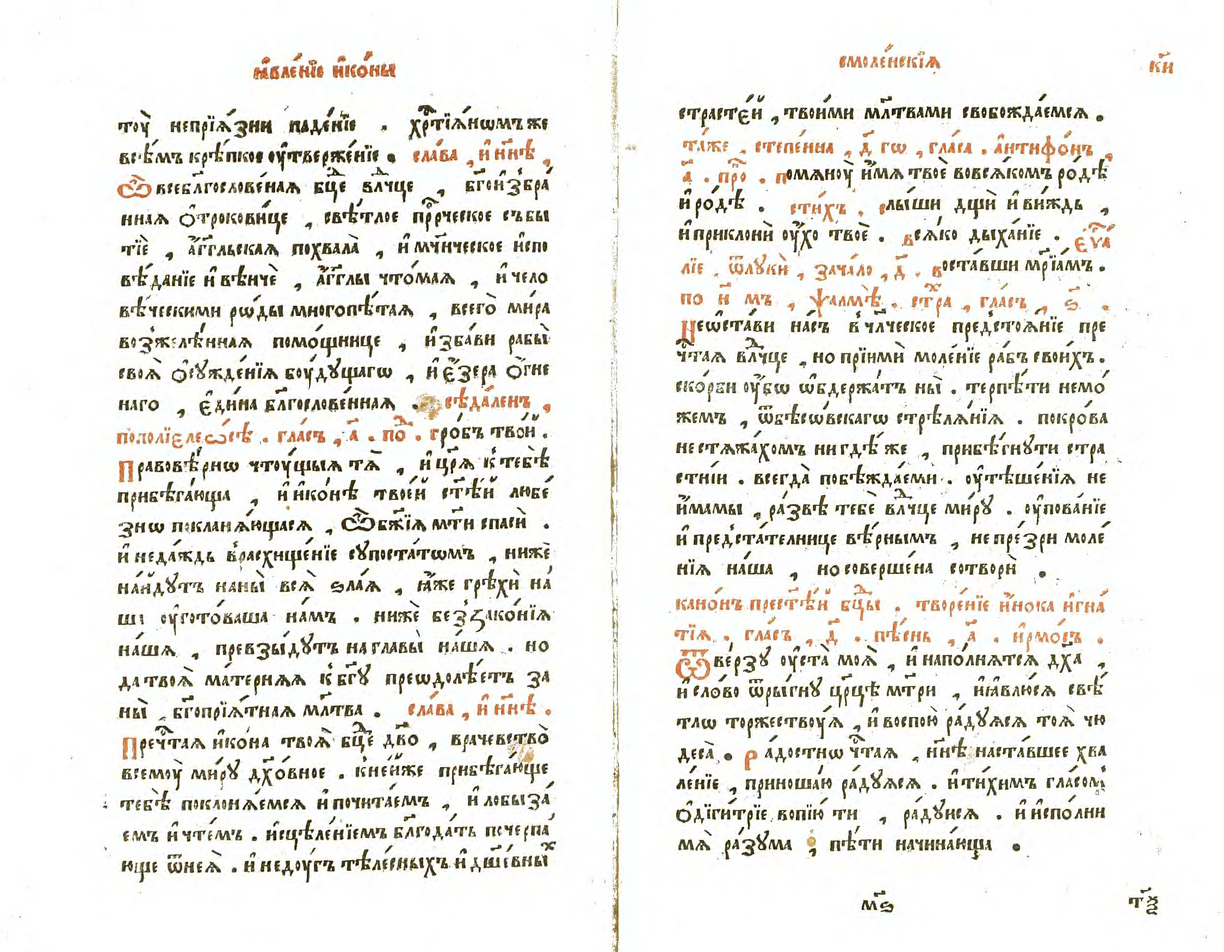 ꙗ҆вле́нїе і҆ко́ны
тоу̀ непрїѧ́зни паде́нїе . хрⷭ҇тїѧ́нѡмъ же
всѣ́мъ крѣ́пкое оу҆твержє́нїе . сла́ва , и҆ ны́нѣ ,
Ѽ всеблгⷭ҇ослове́наѧ бцⷣе влⷣчце , бг҃ои҆збра́
ннаѧ ѻ҆трокови́це , свѣ́тлое прⷪ҇рческое събы
тїѐ , а҆́гг҃льскаѧ похвала̀ , и҆ мч҃ническое и҆спо
вѣ́данїе и҆ вѣ́нче , а҆́гг҃лы что́маѧ , и҆ чело
вѣ́ческими рѡ́ды многопѣ́таѧ , всегѡ̀ ми́ра
возжелѣ́ннаѧ помо́щнице , и҆зба́ви рабы̀
своѧ̀ ѻ҆сужде́нїѧ боу́дущагѡ , и҆ є҆́зера ѻ҆́гне
наго , є҆ди́на блгⷭ҇ослове́ннаѧ . сѣда́ленъ ,
по полїєлеѻсѣ́ . гла́съ , а҃ . поⷣ . гро́бъ тво́й .
Правовѣ́рнѡ что́ущыѧ тѧ̀ , и҆ цр҃ѧ̀ к̾ тебѣ̀
прибѣга́юща , и҆ и҆ко́нѣ твое́й ст҃ѣ́й любе́
знѡ покланѧ́ющасѧ , Ѽ бж҃їѧ мт҃и спасѝ .
и҆ неда́ждь в̾ расхище́нїе супоста́тѡмъ , нижѐ
на́йдутъ на ны̀ всѧ̀ ѕла́ѧ , ꙗ҆́же грѣхѝ на́
ши оу҆гото́ваша на́мъ . нижѐ беззако́нїѧ
на́шѧ , превзы́дутъ на главы̀ на́шѧ . но
да твоѧ̀ ма́терняѧ к̾ бг҃у преѡдолѣ́етъ за
ны̀ , бг҃опрїѧ́тнаѧ млт҃ва . сла́ва , и҆ ны́нѣ .
Пречⷭ҇таѧ и҆ко́на твоѧ̀ бцⷣе дв҃о , врачевство̀
всемоу̀ ми́ру дх҃о́вное . к̾ не́йже прибѣга́юще
тебѣ̀ поклонѧ́емсѧ и҆ почита́емъ , и҆ лобыза́
емъ и҆ чте́мъ . и҆сцѣле́нїемъ блгⷣода́ть почерпа́
юще ѿ неѧ̀ . и҆ неду́гъ тѣле́сныхъ и҆ дш҃е́вныⷯ
смоле́нскїѧ
к҃и
страсте́й , твои́ми млт҃вами свобожда́емсѧ .
та́же , степе́нна , д҃ гѡ , гла́са . а҆нтифо́нъ ,
а҃ . проⷦ . помѧноу̀ и҆́мѧ твоѐ во всѧ́комъ ро́дѣ
и҆ ро́дѣ . сти́хъ . слы́ши дщѝ и҆ ви́ждь ,
и҆ приклонѝ оу҆́хо твоѐ . всѧ́ко дыха́нїе . є҆ѵⷢ҇а́
лїе , ѿ лукѝ , зача́ло , д҃ . воста́вши мрⷭ҇їа́мъ .
по н҃ мъ , ѱалмѣ̀ . стⷯра , гла́съ , ѕ҃ .
Не ѡ҆ста́ви на́съ в̾ члⷭ҇ческое предстоѧ́нїе пре
чⷭ҇таѧ влⷣчце , но прїимѝ моле́нїе ра́бъ свои́хъ .
ско́рби оу҆́бѡ ѡ҆бдержа́тъ ны̀ . терпѣ́ти немо́
жемъ , ѿ бѣсо́вскагѡ стрѣлѧ́нїѧ . покро́ва
не стѧжа́хомъ нигдѣ́же , прибѣ́гнути стра
стнїи . всегда̀ побѣжда́еми . оу҆тѣше́нїѧ не
и҆́мамы , ра́звѣ тебѐ влⷣчце ми́ру . оу҆пова́нїе
и҆ предста́телнице вѣ́рнымъ , не пре́зри моле́
нїѧ на́ша , но соверше́на сотворѝ .
кано́нъ прест҃ѣ́й бцⷣы . творе́нїе и҆́нока и҆гна́
тїѧ . гла́съ , д҃ . пѣ́снь , а҃ . і҆рмо́съ .
Ѿве́рзу оу҆ста̀ моѧ̀ , и҆ напо́лнѧтсѧ дх҃а ,
и҆ сло́во ѿры́гну цр҃цѣ мт҃ри , и҆ ꙗ҆влю́сѧ свѣ́
тлѡ торжествоу́ѧ , и҆ воспою̀ ра́дуѧсѧ тоѧ̀ чю
деса̀ . Ра́достнѡ чⷭ҇таѧ , ны́нѣ наста́вшее хва
ле́нїе , приноша́ю ра́дуѧсѧ . и҆ ти́химъ гла́сомъ
ѻ҆диги́трїе вопїю́ ти , ра́дуисѧ . и҆ и҆спо́лни
мѧ̀ ра́зума , пѣ́ти начина́юща .
м҃ѕ